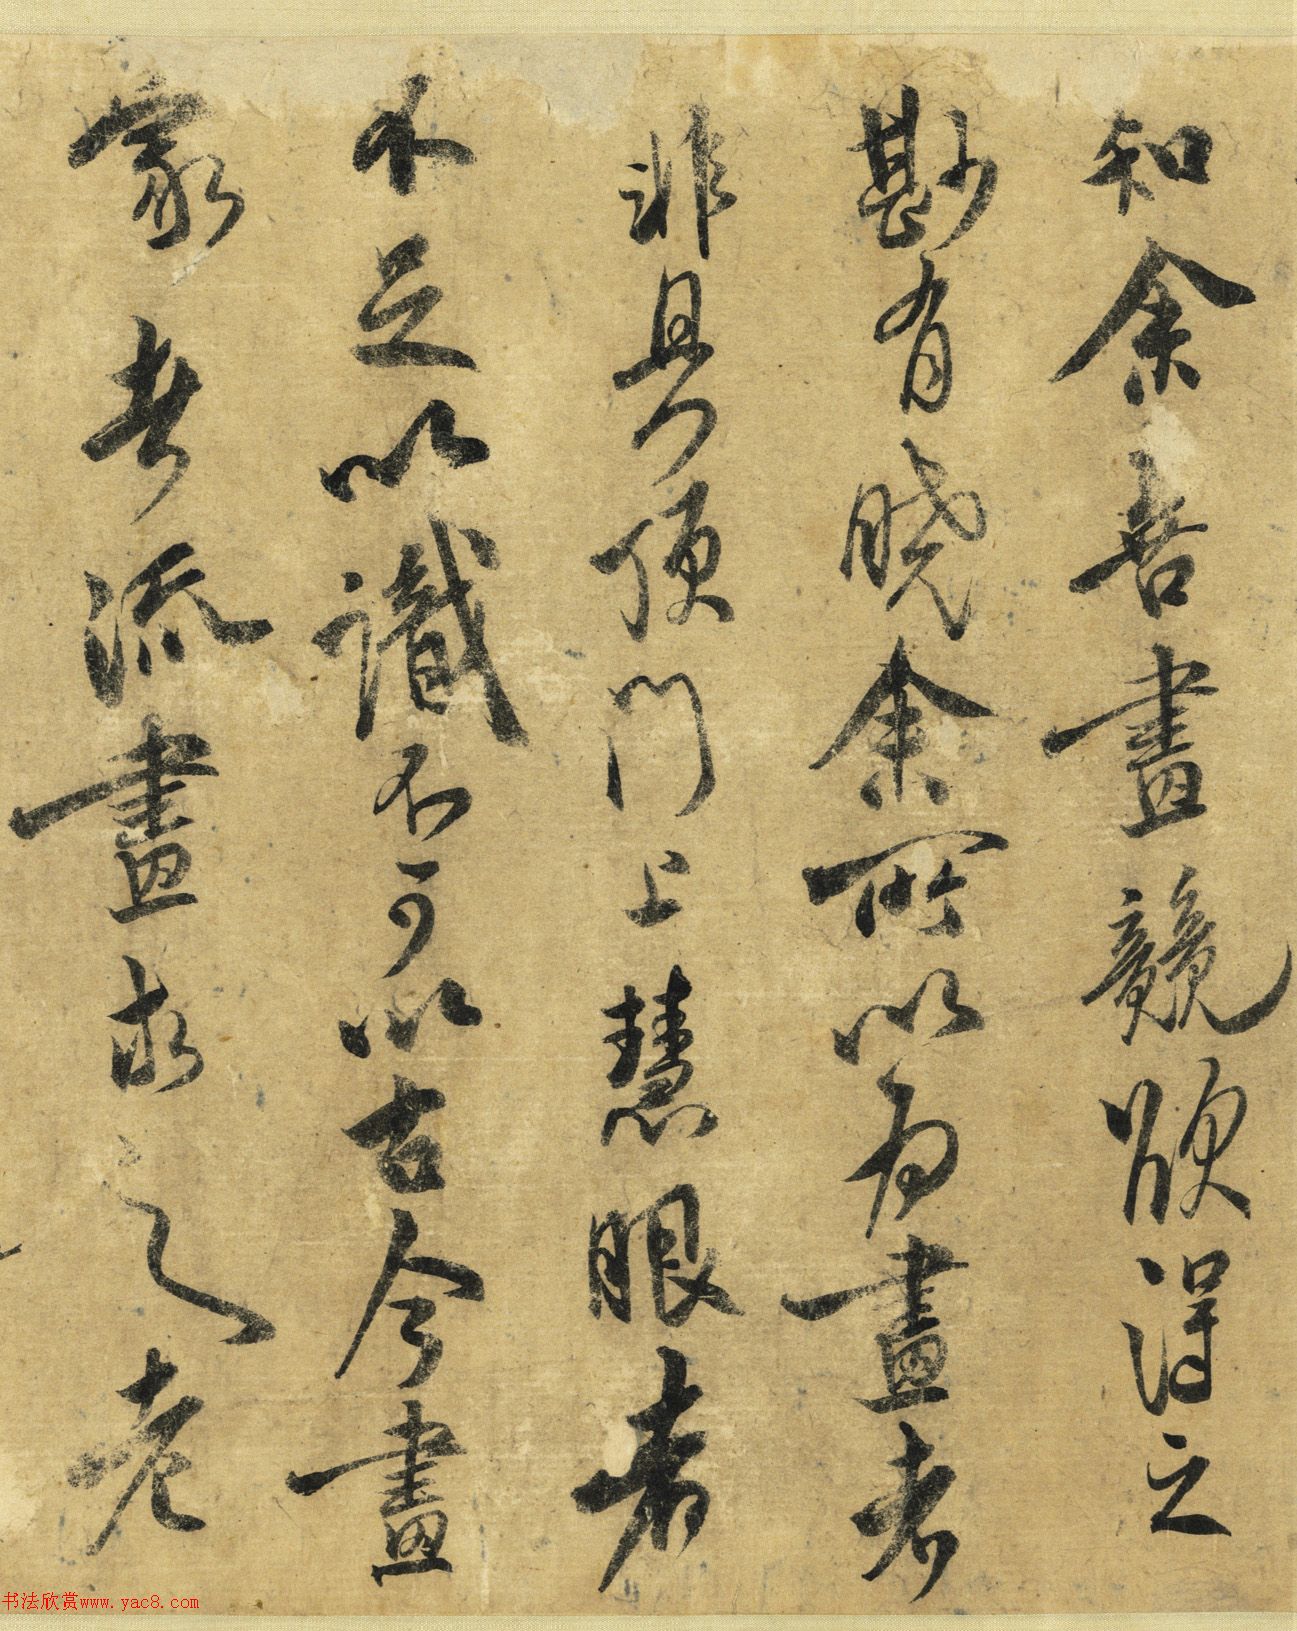 知余善畫競欲得之
尠有曉余所以為畫者
非具頂門上慧眼者
不足以識不可以古今畫
家者流畫求之老
書法欣賞www.yac8.com